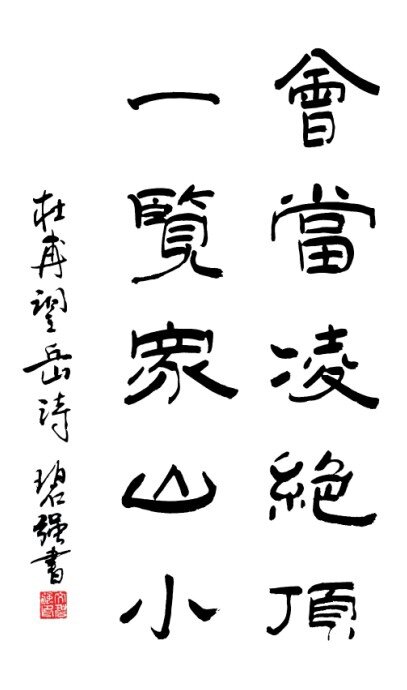 會當凌絕頂
一覽眾山小
杜甫望岳詩 碧強書